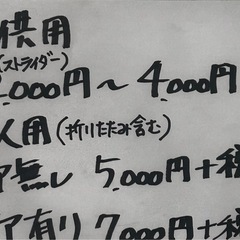 供用
(ストライダー)
,000円〜4,000円
人用(折りたたみ含む)
ア無し 5,000円+税
ア有り 7,000円+税